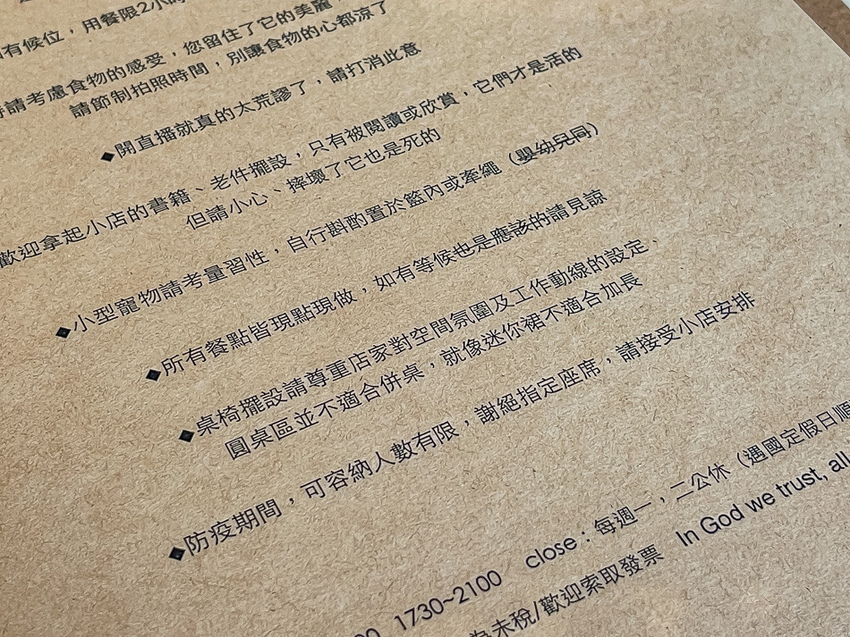 有候位，用餐限2小時
請考慮食物的感受，您留住了它的美麗，
請節制拍照時間，別讓食物的心都涼了
◆開直播就真的太荒謬了，請打消此意
歡迎拿起小店的書籍、老件擺設，只有被閱讀或欣賞，它們才是活的
但請小心、摔壞了它也是死的
◆小型寵物請考量習性，自行斟酌置於籃內或牽繩（嬰幼兒同）
◆所有餐點皆現點現做，如有等候也是應該的請見諒
◆桌椅擺設請尊重店家對空間氛圍及工作動線的設定、
圓桌區並不適合併桌，就像迷你裙不適合加長
◆防疫期間，可容納人數有限，謝絕指定座席，請接受小店安排
00 1730~2100 close：每週一，二公休（遇國定假日順
為未稅/歡迎索取發票 In God we trust, all